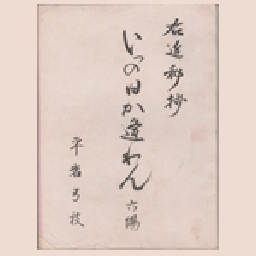 右近新抄
いつの日か逢わん
六陽
平岩弓枝